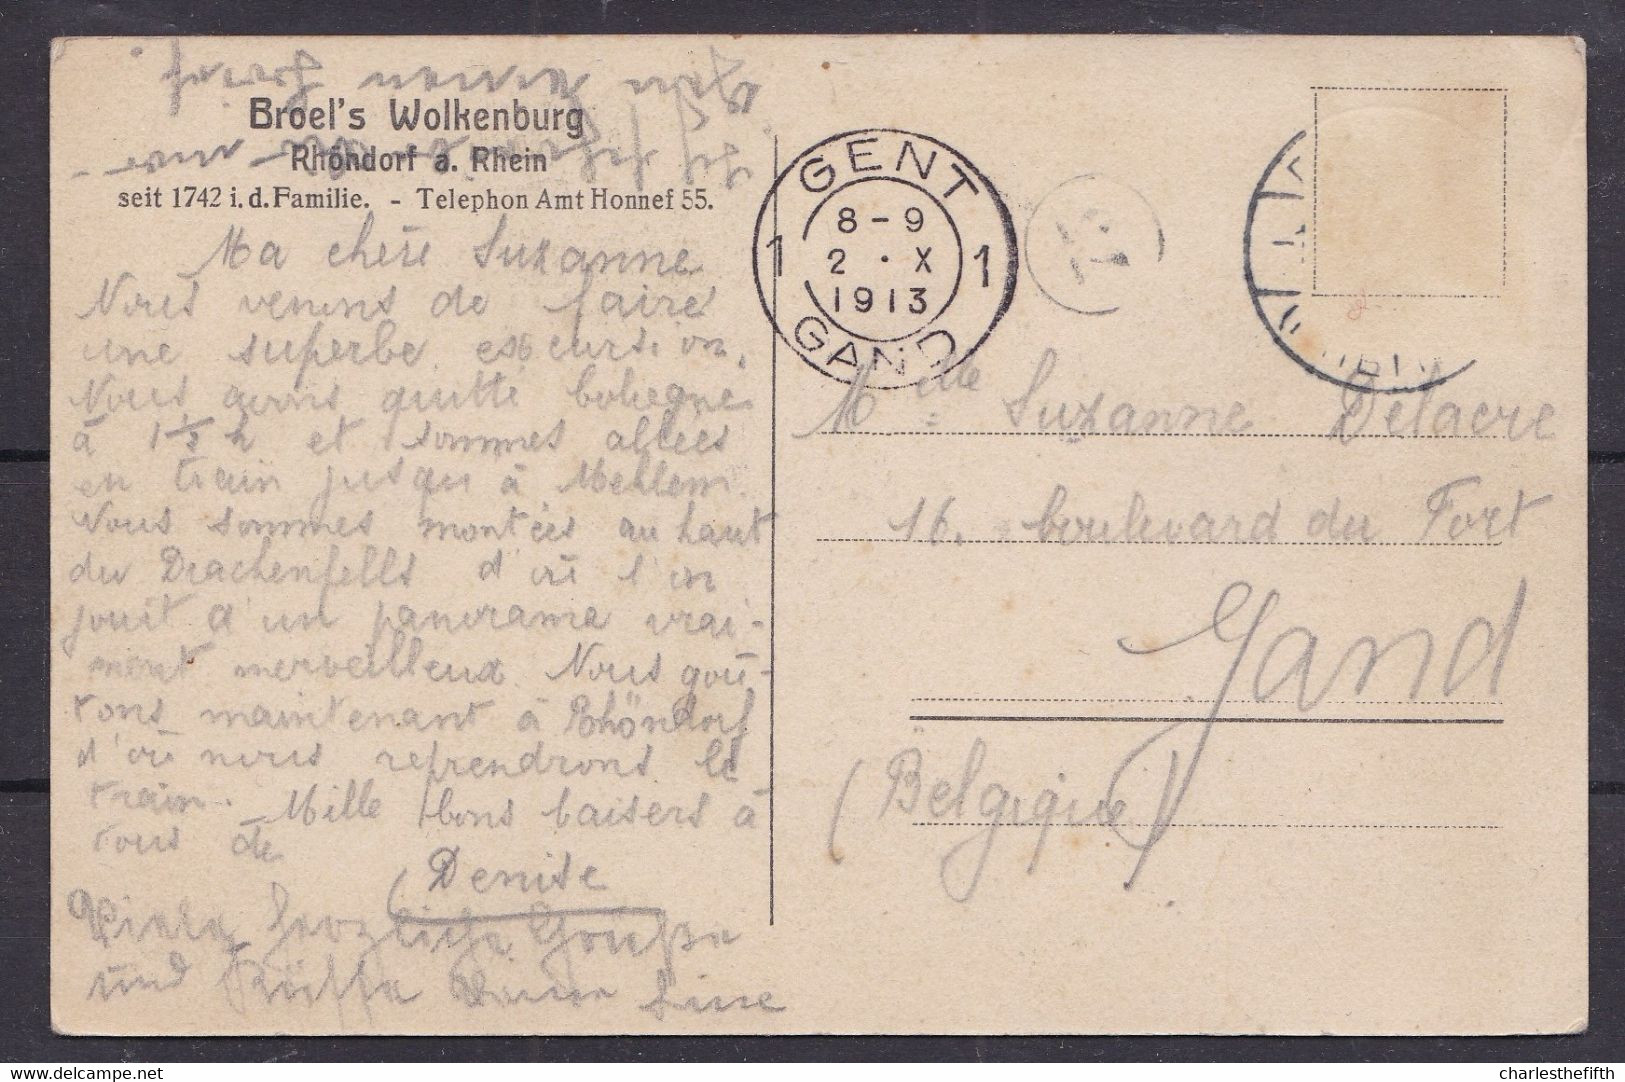 Broel's Wolkenburg
Rhöndorf a. Rhein
seit 1742 i. d. Familie. - Telephon Amt Honnef 55.
Ma chère Suzanne
Nous venons de faire
une superbe excursion.
Nous avons quitté
à 1 1/2 h et sommes allées
en train jusqu'à Mehlem.
Nous sommes montées au haut
du Drachenfells d'où l'on
jouit d'un panorama vrai-
ment merveilleux Nous goû-
tons maintenant à Rhöndorf
d'où nous reprendrons le
train. Mille bons baisers à
tous de
Denise
Viele herzliche Grüsse
und Küsse Deine Line
GENT
1 8-9 1
2 · X
1913
GAND
Melle Suzanne Delacre
16. boulevard du Fort
Gand
(Belgique)
charlesthefifth